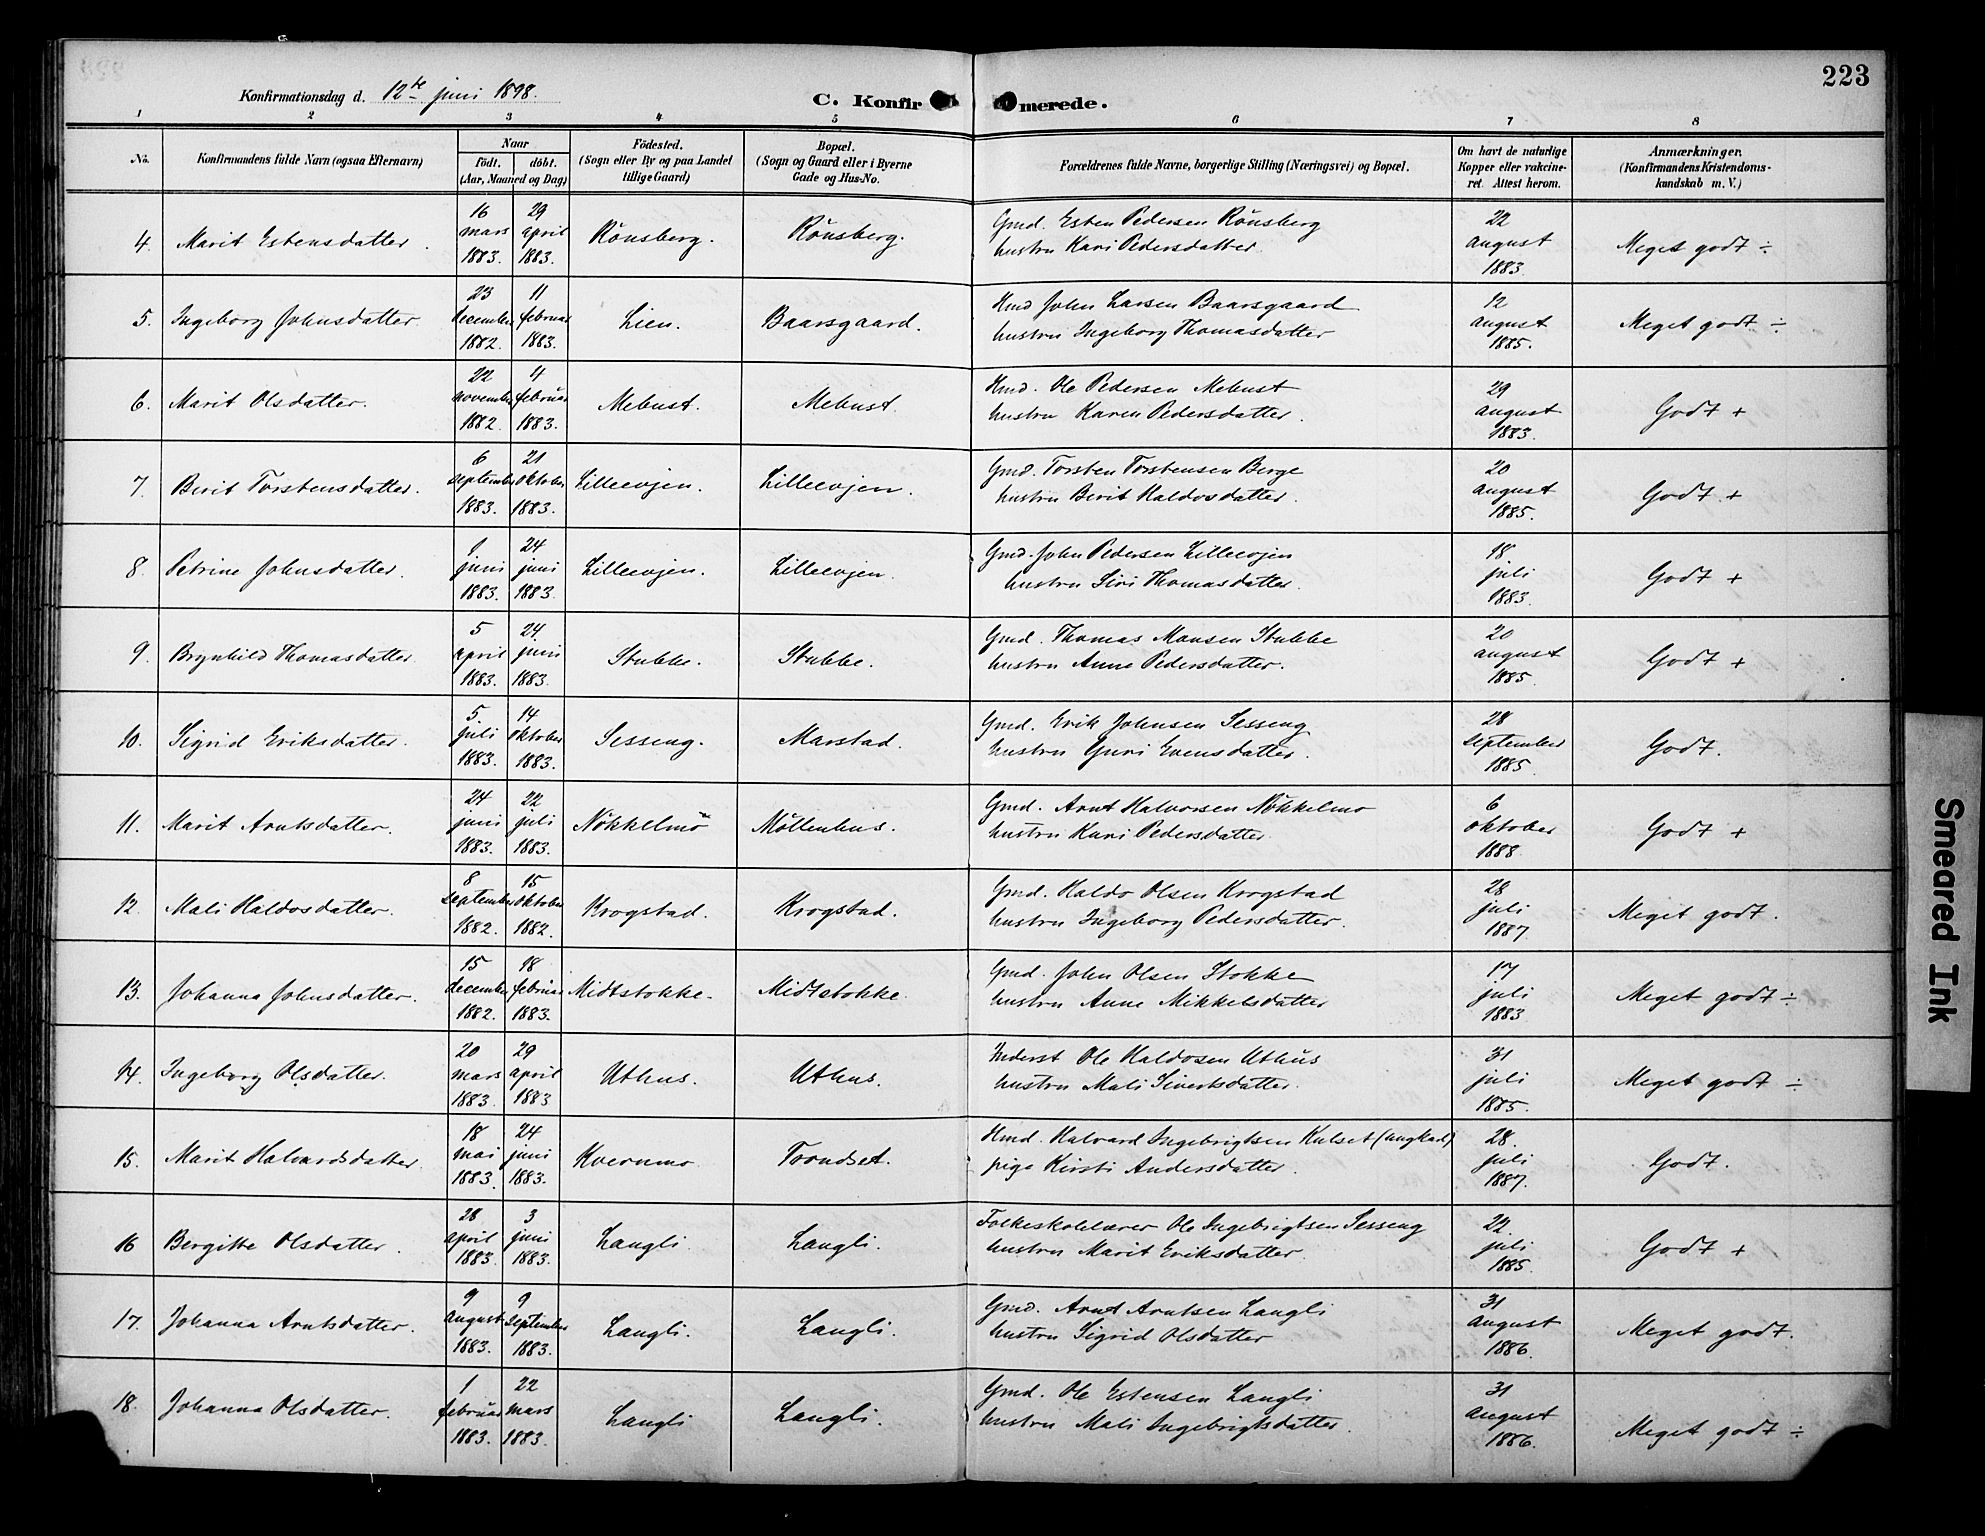 223
Konfirmationsdag d. 12te juni 1898.
C. Konfirmerede.
1 2 3 4 5 6 7 8
No. Konfirmandens fulde Navn (ogsaa Efternavn) Naar født. døbt. (Aar, Maaned og Dag) Födested. (Sogn eller By og paa Landet tillige Gaard) Bopæl. (Sogn og Gaard eller i Byerne Gade og Hus-No. Forældrenes fulde Navne, borgerlige Stilling (Næringsvei) og Bopæl. Om havt de naturlige Kopper eller vakcineret. Attest herom. Anmærkninger. (Konfirmandens Kristendomskundskab m. V.)
4. Marit Estensdatter. 16 mars 1883. 29 april 1883. Rönsberg. Rönsberg. Gmd. Esten Pedersen Rönsberg hustru Kari Pedersdatter 22 august 1883. Meget godt ÷
5. Ingeborg Johnsdatter 23 december 1882. 11 februar 1883. Lien. Baarsgaard. Hmd John Larsen Baarsgaard hustru Ingeborg Thomasdatter 12 august 1885. Meget godt ÷
6. Marit Olsdatter. 22 november 1882. 4 februar 1883. Mebust. Mebust. Hmd. Ole Pedersen Mebust hustru Karen Pedersdatter. 29 august 1883. Godt +
7. Berit Torstensdatter. 6 september 1883. 21 oktober 1883. Lilleevjen. Lilleevjen. Gmd. Torsten Torstensen Berge hustru Berit Haldosdatter. 20 august 1885. Godt +
8. Petrine Johnsdatter. 1 juni 1883. 24 juni 1883. Lilleevjen. Lilleevjen. Gmd. John Pedersen Lilleevjen hustru Siri Thomasdatter. 18 juli 1883. Godt +
9. Brynhild Thomasdatter 5 april 1883. 24. juni 1883. Stubbe. Stubbe. Gmd. Thomas Monsen Stubbe hustru Anne Pedersdatter. 20 august 1885. Godt +
10. Sigrid Eriksdatter. 5. juli 1883. 14 oktober 1883. Sesseng. Marstad. Gmd. Erik Johnsen Sesseng hustru Guri Evensdatter. 28 september 1885. Godt.
11. Marit Arntsdatter. 24 juni 1883. 22 juli 1883. Nökkelmo Möllenhus. Gmd. Arnt Halvorsen Nökkelmo hustru Kari Pedersdatter. 6 oktober 1888. Godt +
12. Mali Haldosdatter. 8 september 1882. 15 oktober 1882. Krogstad. Krogstad. Gmd. Haldo Olsen Krogstad hustru Ingeborg Pedersdatter. 28 juli 1887. Meget godt.
13. Johanna Johnsdatter. 15 december 1882. 18 februar 1883. Midtstokke. Midtstokke. Gmd. John Olsen Stokke hustru Anne Mikkelsdatter 17 juli 1883 Meget godt ÷
14. Ingeborg Olsdatter. 20 mars 1883. 29 april 1883 Uthus. Uthus. Inderst Ole Haldosen Uthus hustru Mali Sivertsdatter. 31 juli 1885. Meget godt ÷
15. Marit Halvardsdatter. 18 mai 1883. 24 juni 1883. Kvernmo Trondset. Hmd. Halvard Ingebrigtsen Kulset (ungkarl) pige Kirsti Andersdatter. 28. juli 1887. Godt.
16 Bergitte Olsdatter. 28 april 1883. 3 juni 1883. Langli. Langli. Folkeskolelærer Ole Ingebrigtsen Sesseng hustru Marit Eriksdatter. 22. juli 1885. Godt +
17. Johanna Arntsdatter. 9 august 1883. 9 september 1883. Langli. Langli. Gmd. Arnt Arntsen Langli hustru Sigrid Olsdatter 31 august 1886. Meget godt.
18. Johanna Olsdatter. 1 februar 1883. 22 mars 1883. Langli Langli. Gmd. Ole Estensen Langli hustru Mali Ingebrigtsdatter. 31 august 1886. Meget godt ÷
Smeared Ink